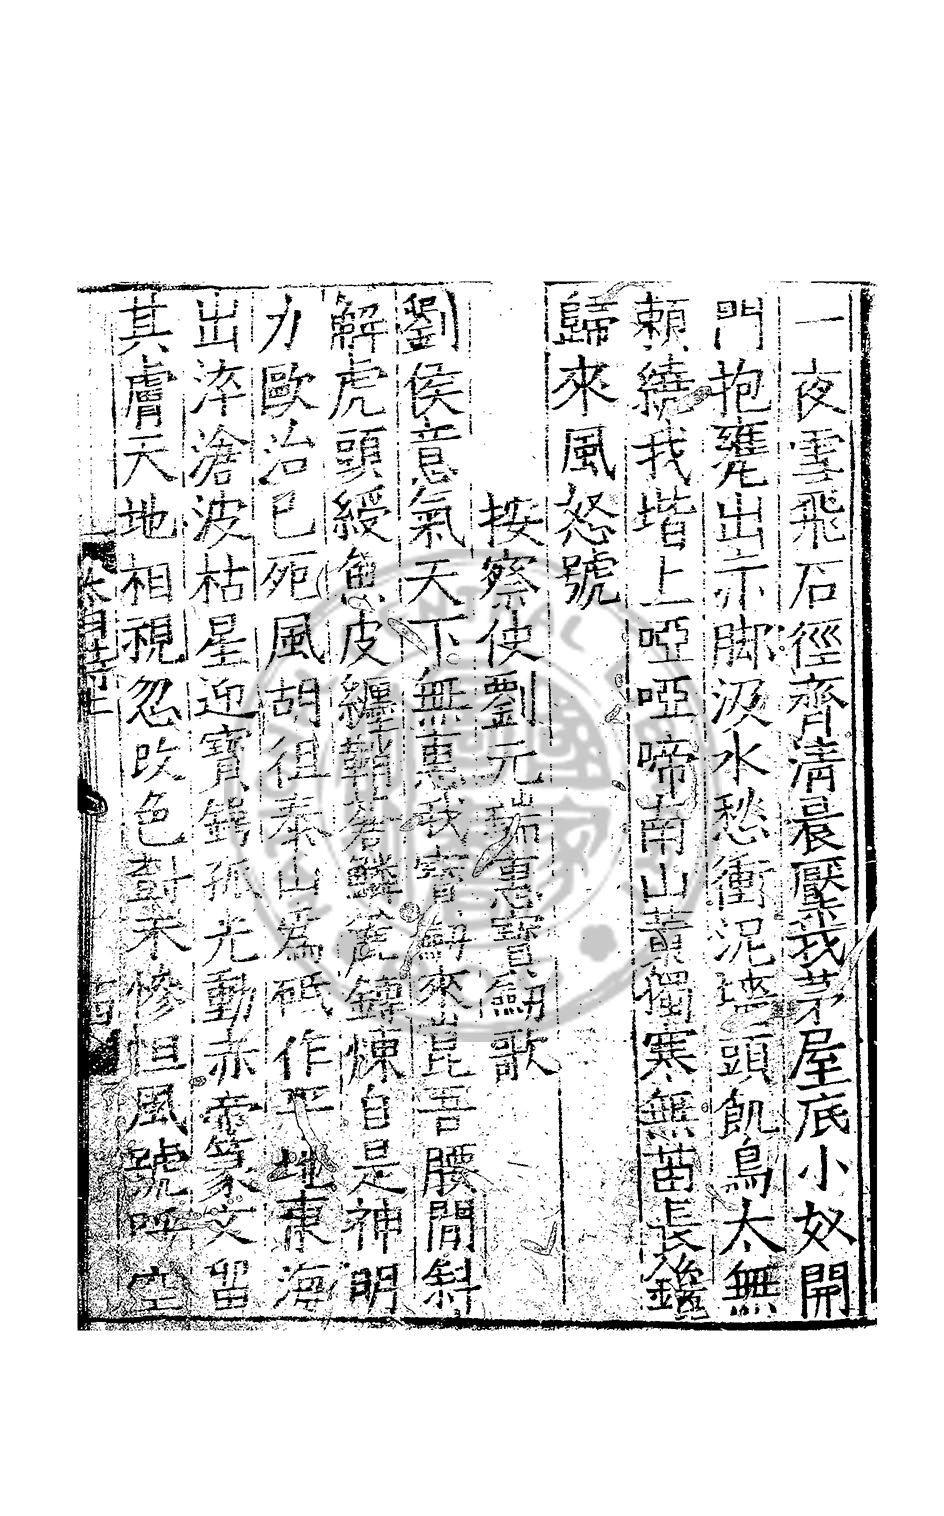 一夜雪飛石徑齊清晨壓我茅屋底小奴開
門抱甕出赤脚汲水愁衝泥墻頭飢烏太無
賴繞我堦上啞啞啼南山黃獨寒無苗長鑱
歸來風怒號
按察使劉元瑞惠寶劒歌
劉侯意氣天下無惠我寶劒來昆吾腰間斜
解虎頭綬魚皮纏鞘蒼鱗麁鑄煉自是神明
力歐冶已死風胡徂泰山爲砥作平地東海
出淬滄波枯星迎寳鍔孤光動赤帝篆文留
其膚天地相視忽改色對禾慘怛風號呼空